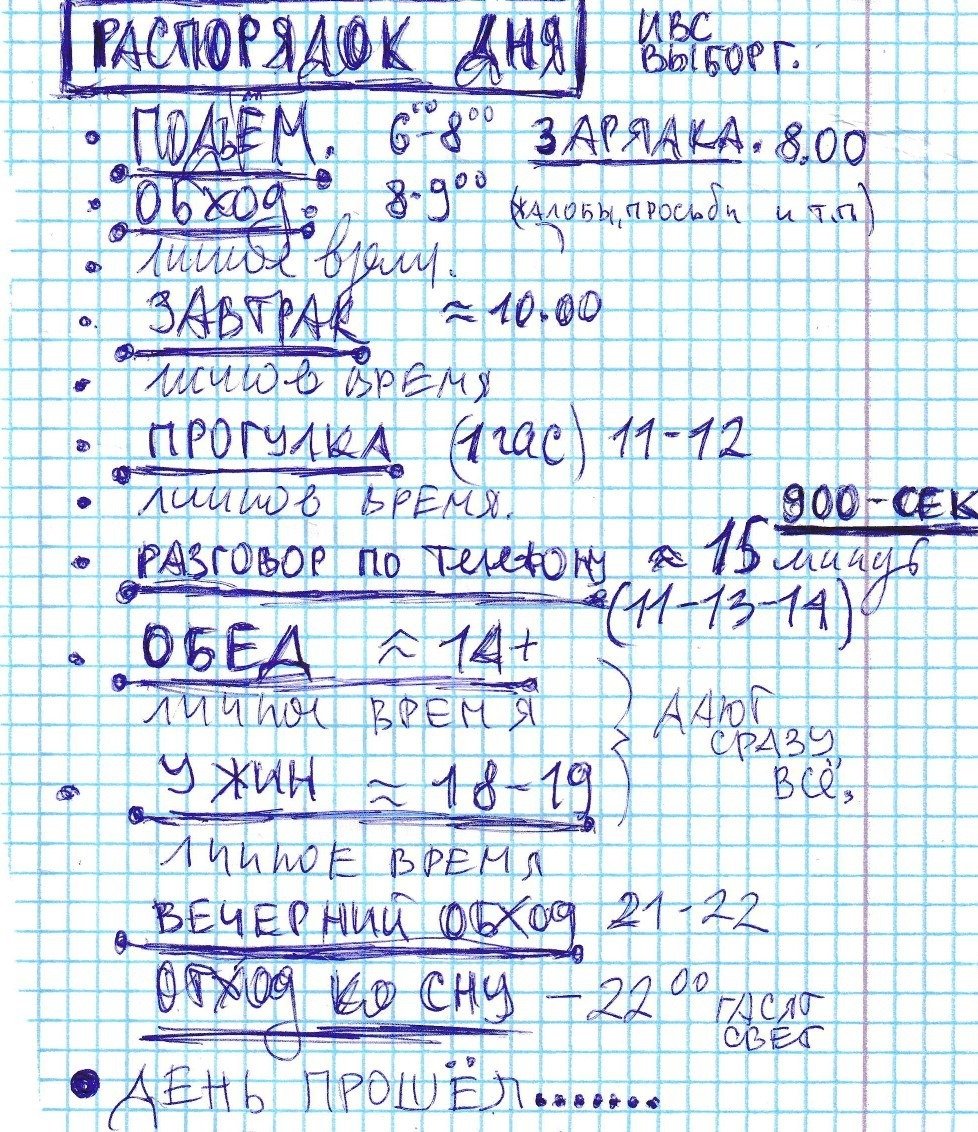 РАСПОРЯДОК ДНЯ ИВС
ВЫБОРГ.
• ПОДЪЁМ. 6⁰⁰-8⁰⁰ ЗАРЯДКА. 8.00
• ОБХОД. 8-9⁰⁰ (ЖАЛОБЫ, ПРОСЬБЫ и т.п)
• личное время.
• ЗАВТРАК ≈ 10.00
• личное ВРЕМЯ
• ПРОГУЛКА (1 час) 11-12
• личное ВРЕМЯ.
900-СЕК
• РАЗГОВОР ПО ТЕЛЕФОНУ ≈ 15 минут
(11-13-14)
• ОБЕД ≈ 14+
личное ВРЕМЯ } ДАЮТ
СРАЗУ
ВСЁ.
• УЖИН ≈ 18-19
личное ВРЕМЯ
ВЕЧЕРНИЙ ОБХОД 21-22
ОТХОД КО СНУ – 22⁰⁰ ГАСЯТ
СВЕТ
• ДЕНЬ ПРОШЁЛ........